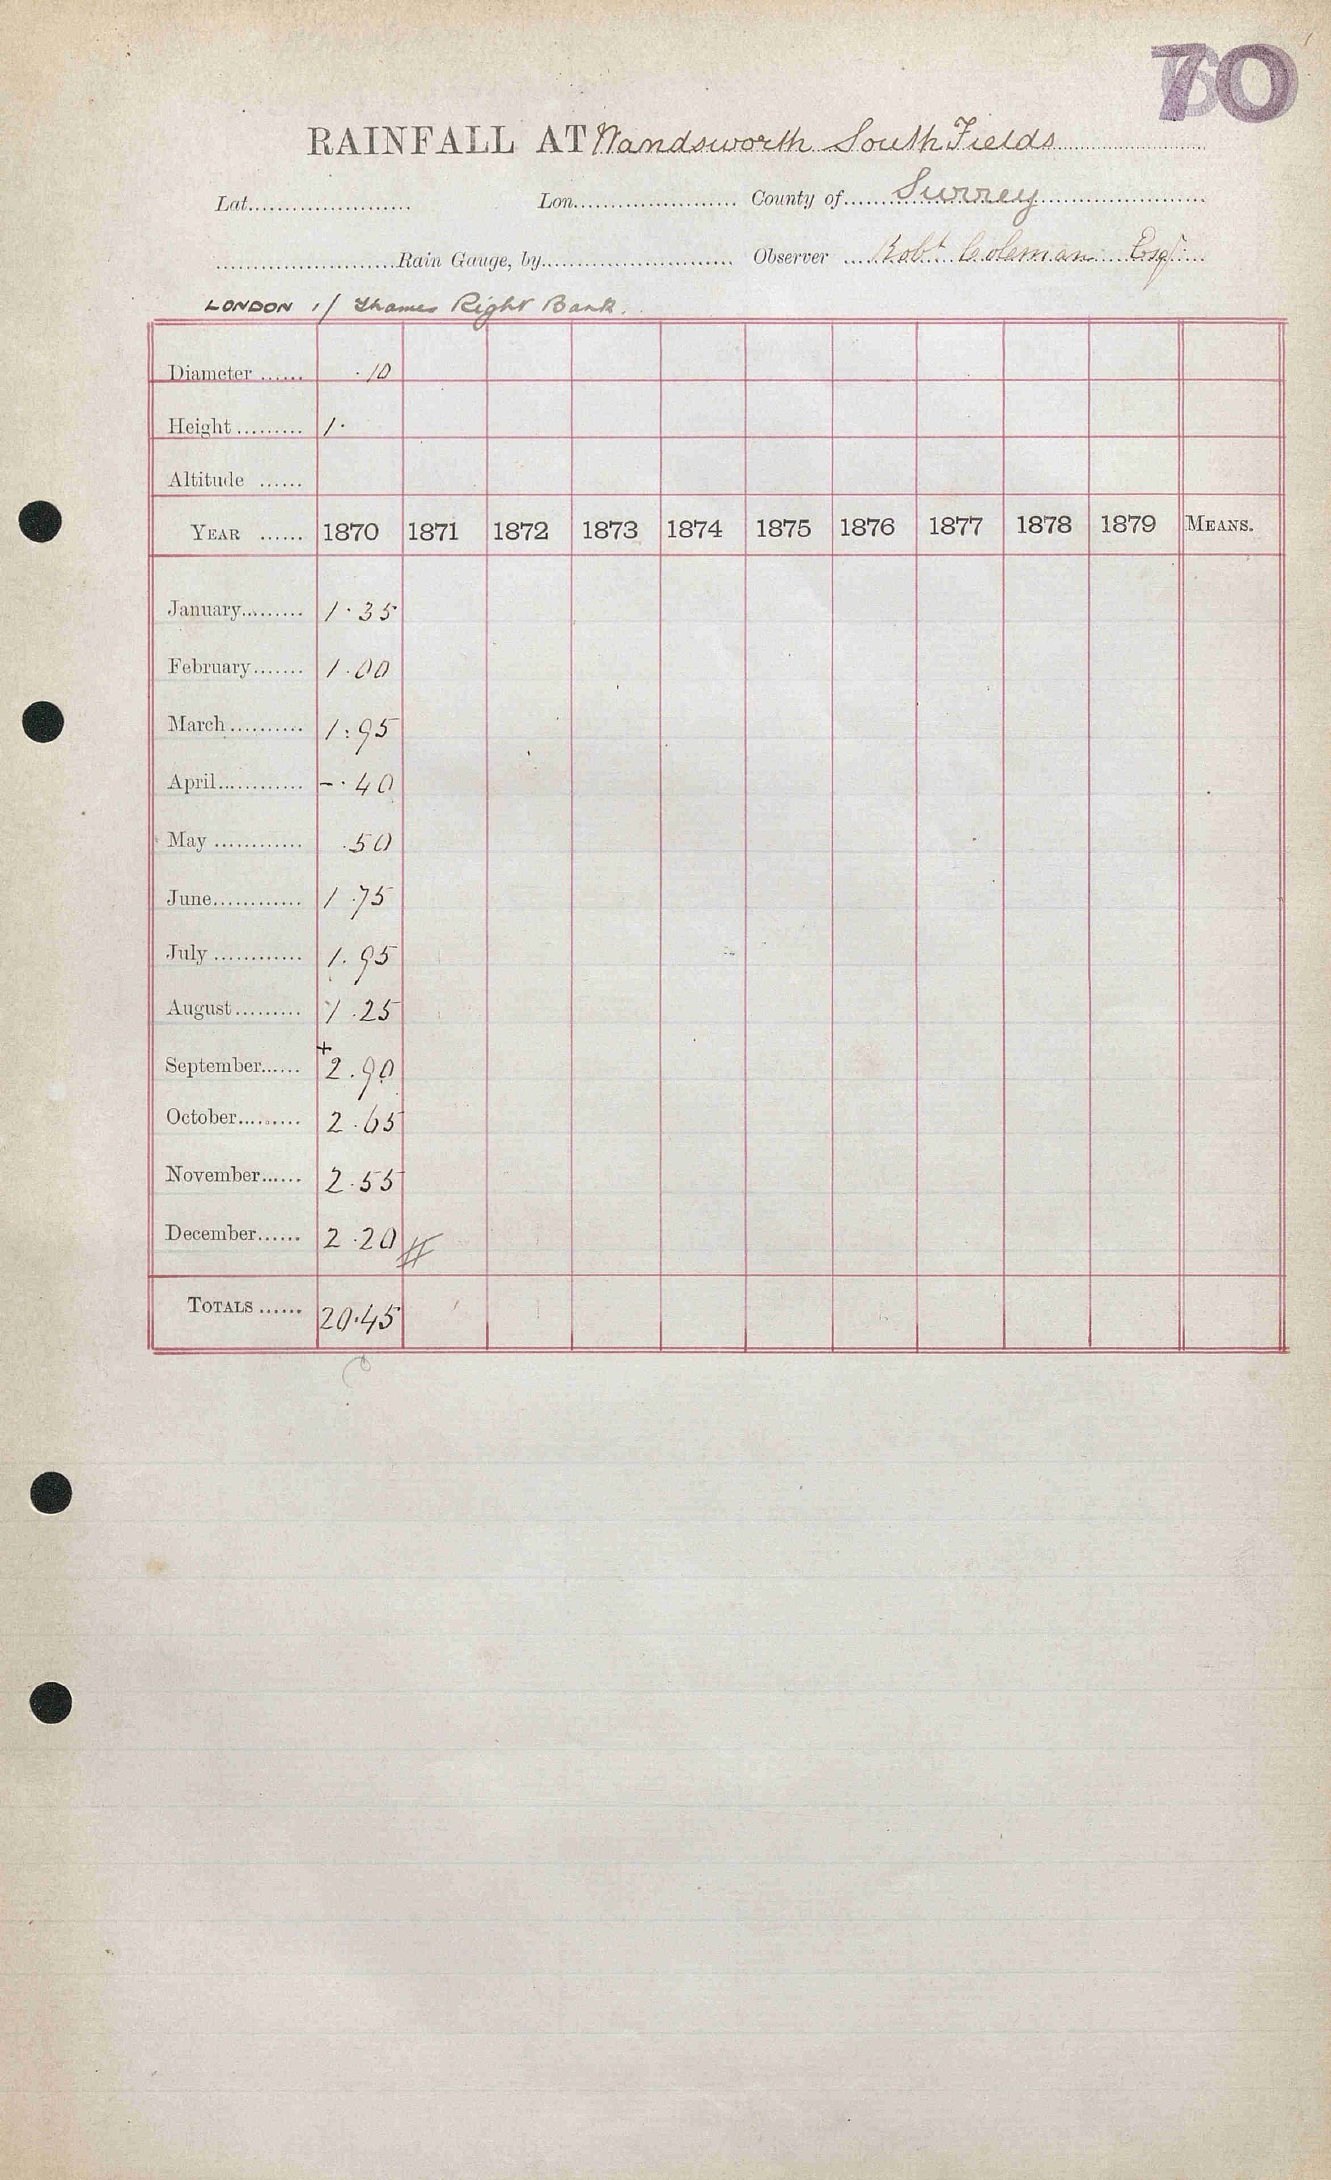 70
RAINFALL AT Wandsworth South Fields
Lat. Lon. County of Surrey
Rain Gauge, by Observer Robt Coleman Esqr
LONDON 1/ Thames Right Bank.
Diameter ...... ·10
Height ......... 1·
Altitude ......
YEAR ...... 1870 1871 1872 1873 1874 1875 1876 1877 1878 1879 MEANS.
January......... 1·35
February....... 1·00
March.......... 1·95
April............ -·40
May ............ ·50
June............ 1·75
July ............ 1·95
August......... 1·25
September...... + 2·90
October......... 2·65
November...... 2·55
December...... 2·20 #
TOTALS ...... 20·45